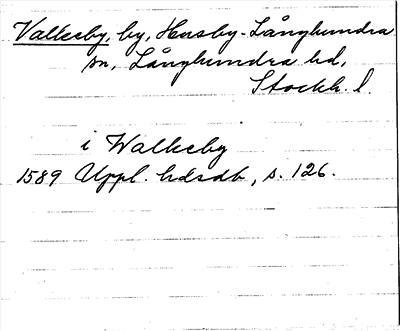 Valkeby, by, Husby-Långhundra
sn, Långhundra hd,
Stockh. l.
i Walkeby
1589 Uppl. hdrdb, s. 126.